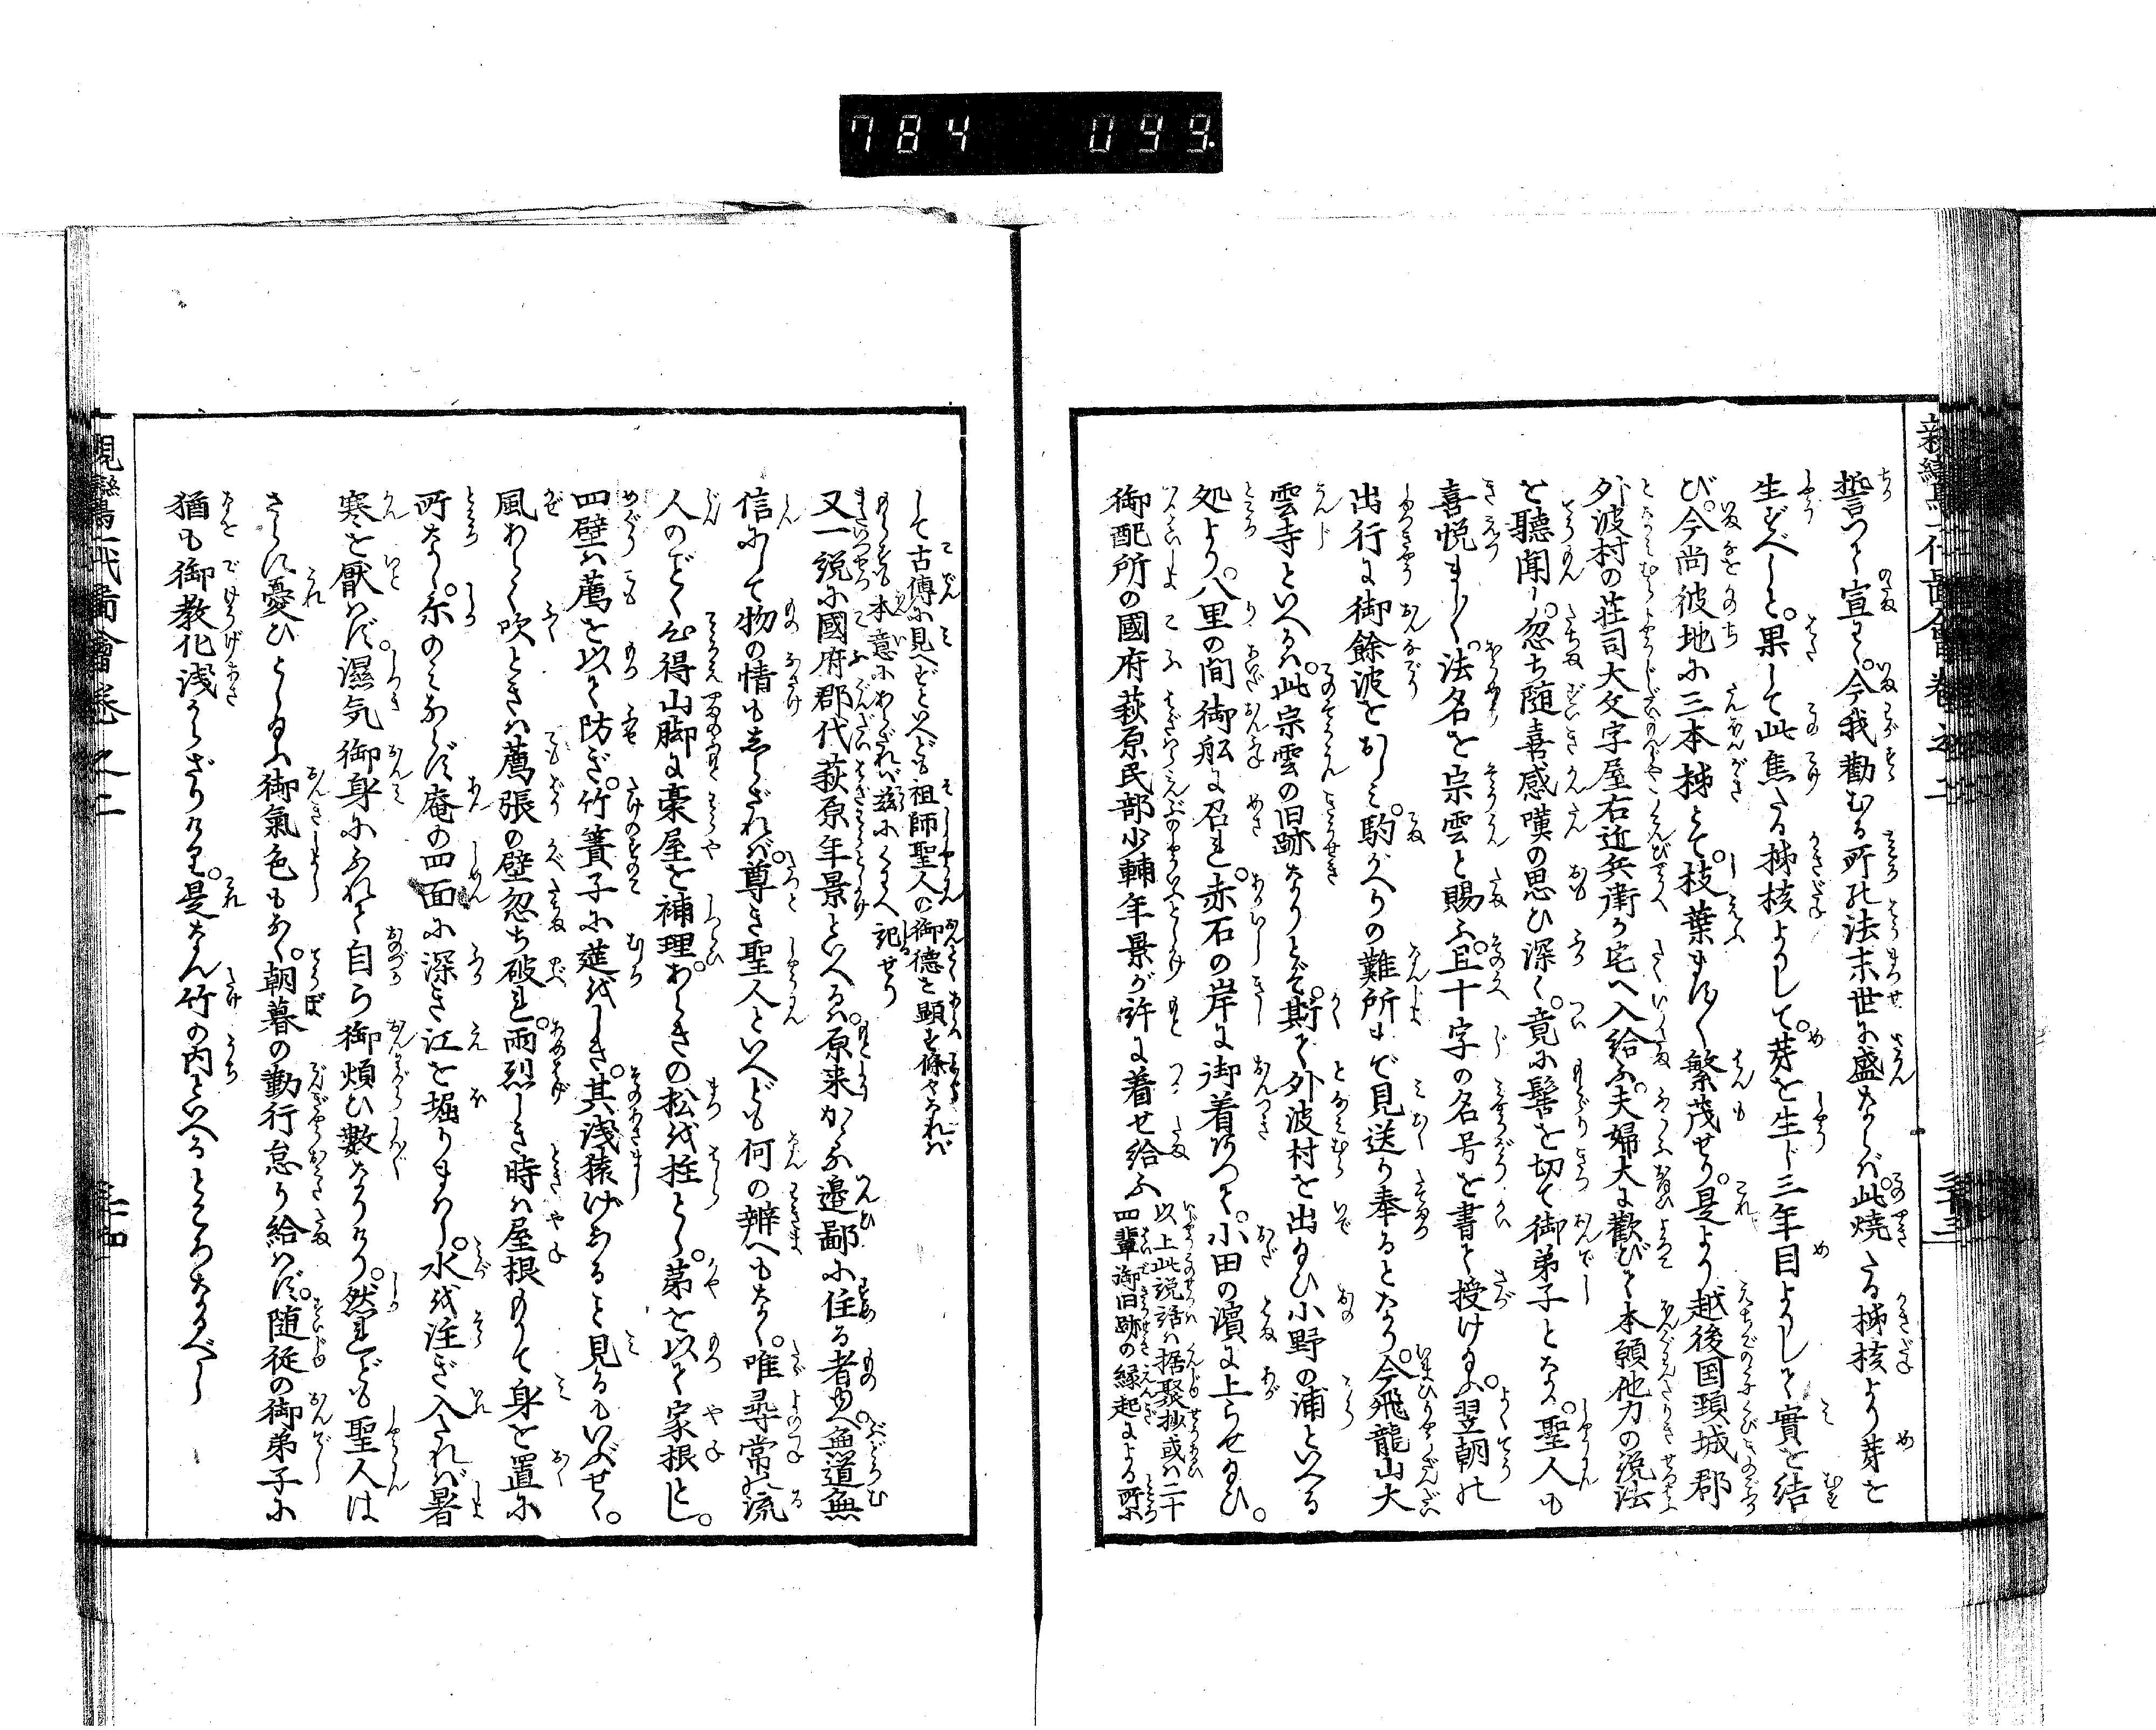 784 099.
誓つて宣はく。今我勸むる所の法末世に盛ならば。此焼たる柹核より芽を
生ずべしと。果して此焦たる柹核よりして。芽を生じ三年目よりして實を結
び。今尚彼地に三本柹とて。枝葉ます〳〵繁茂せり。是より越後国頸城郡
外波村の荘司大文字屋右近兵衛が宅へ入給ふ。夫婦大に歡びて本願他力の説法
を聽聞し。忽ち随喜感嘆の思ひ深く。竟に髻を切て御弟子となる。聖人も
喜悦まし〳〵。法名を宗雲と賜ふ。且十字の名号を書て授け給ふ。翌朝の
出行に御餘波をおしみ。駒がへりの難所まで見送り奉るとなり。今飛龍山大
雲寺といへるは。此宗雲の旧跡なりとぞ。斯て外波村を出給ひ小野の浦といへる
処より。八里の間御舩に召れ。赤石の岸に御着ありて。小田の濵に上らせ給ひ。
御配所の國府萩原民部少輔年景が許に着せ給ふ
以上此説話は据聚抄或は二十
四輩御旧跡の縁起による所に
して古傳に見へずといへども祖師聖人の御徳を顕す條々なれば
本意にあらざれば茲にくはへ記せり
又一説に國府郡代萩原年景といへるは。原来かゝる邉鄙に住る者ゆへ。無道無
信にして物の情もしらざれば。尊き聖人といへども何の辨へもなく。唯尋常の流
人のごとく心得山脚に藁屋を補理。あらきの松を拄とし。茅を以て家根とし。
四壁は薦を以て防ぎ。竹簀子に莚をしき。其浅猿げなること見るもいぶせく。
風あらく吹ときは薦張の壁忽ち破れ。雨烈しき時は屋根もりて身を置に
所なし。尓のみならず庵の四面に深き江を堀りまはし。水を注ぎ入たれば暑
寒を厭はず。濕気御身にふれて自ら御煩ひ數なりけり。然れども聖人は
さらに憂ひとし給ふ御氣色もなく。朝暮の勤行怠り給はず。随従の御弟子に
猶も御教化浅からざりけり。是なん竹の内といへるところなるべし
親鸞一代圖會巻之二